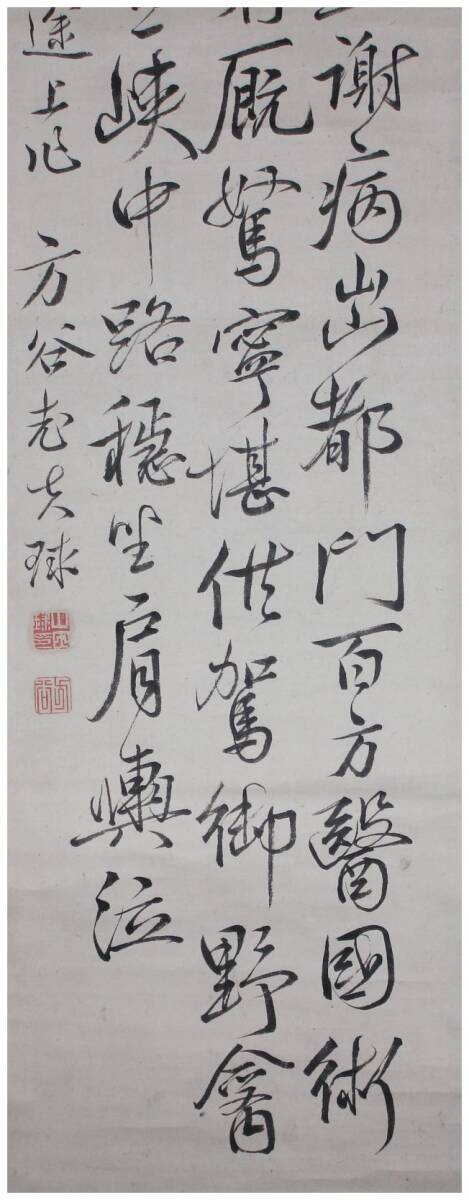 謝病出都門百方醫國術
厩駑寧堪供駕御野禽
峽中路穏坐肩輿泣
途上作 方谷老夫球